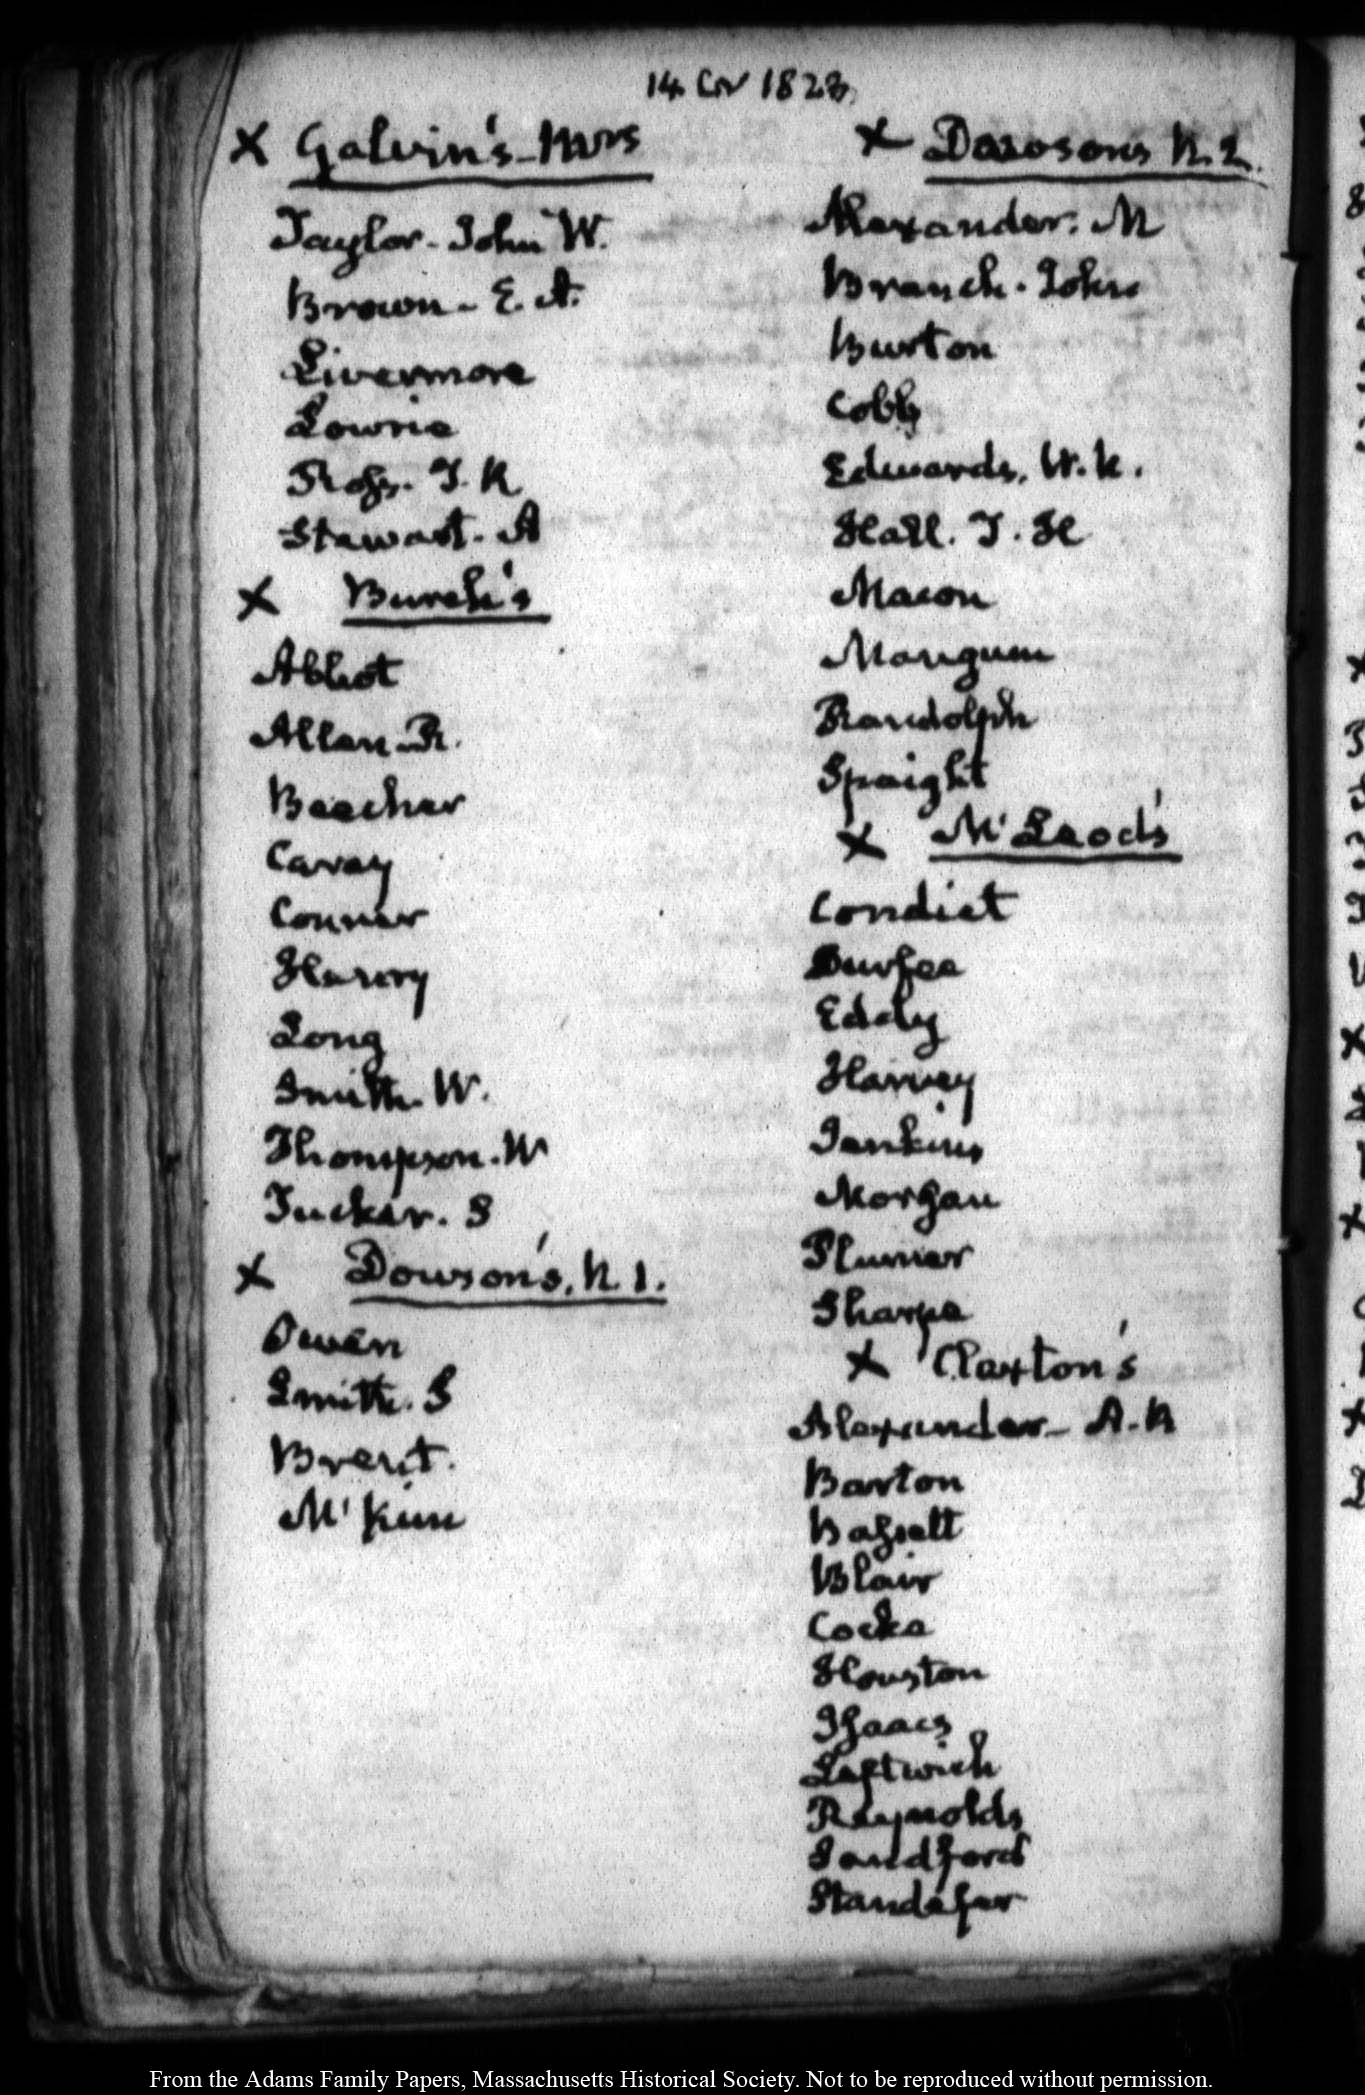 14. Cov 1823.
× Galvin's - Mrs
Taylor - John W.
Brown - E. A.
Livermore
Lowrie
Ross. T. R
Stewart. A
× Burch's
Abbot
Allen - R.
Beecher
Cavey
Conner
Henry
Long
Smith. W.
Thompson. W
Tucker. S
× Dowson's, N. 1.
Owen
Smith. S
Brent.
M'Kim
× Dawson's N. 2.
Alexander. M
Branch. John
Burton
Cobb
Edwards, W. K.
Hall. T. H
Macon
Mangum
Randolph
Spaight
× M'Leod's
Condict
Durfee
Eddy
Harvey
Jenkins
Morgan
Plumer
Sharpe
× Claxton's
Alexander - A. R
Barton
Bassett
Blair
Cocke
Houston
Isaacs
Leftwich
Reynolds
Sandford
Standefer
From the Adams Family Papers, Massachusetts Historical Society. Not to be reproduced without permission.